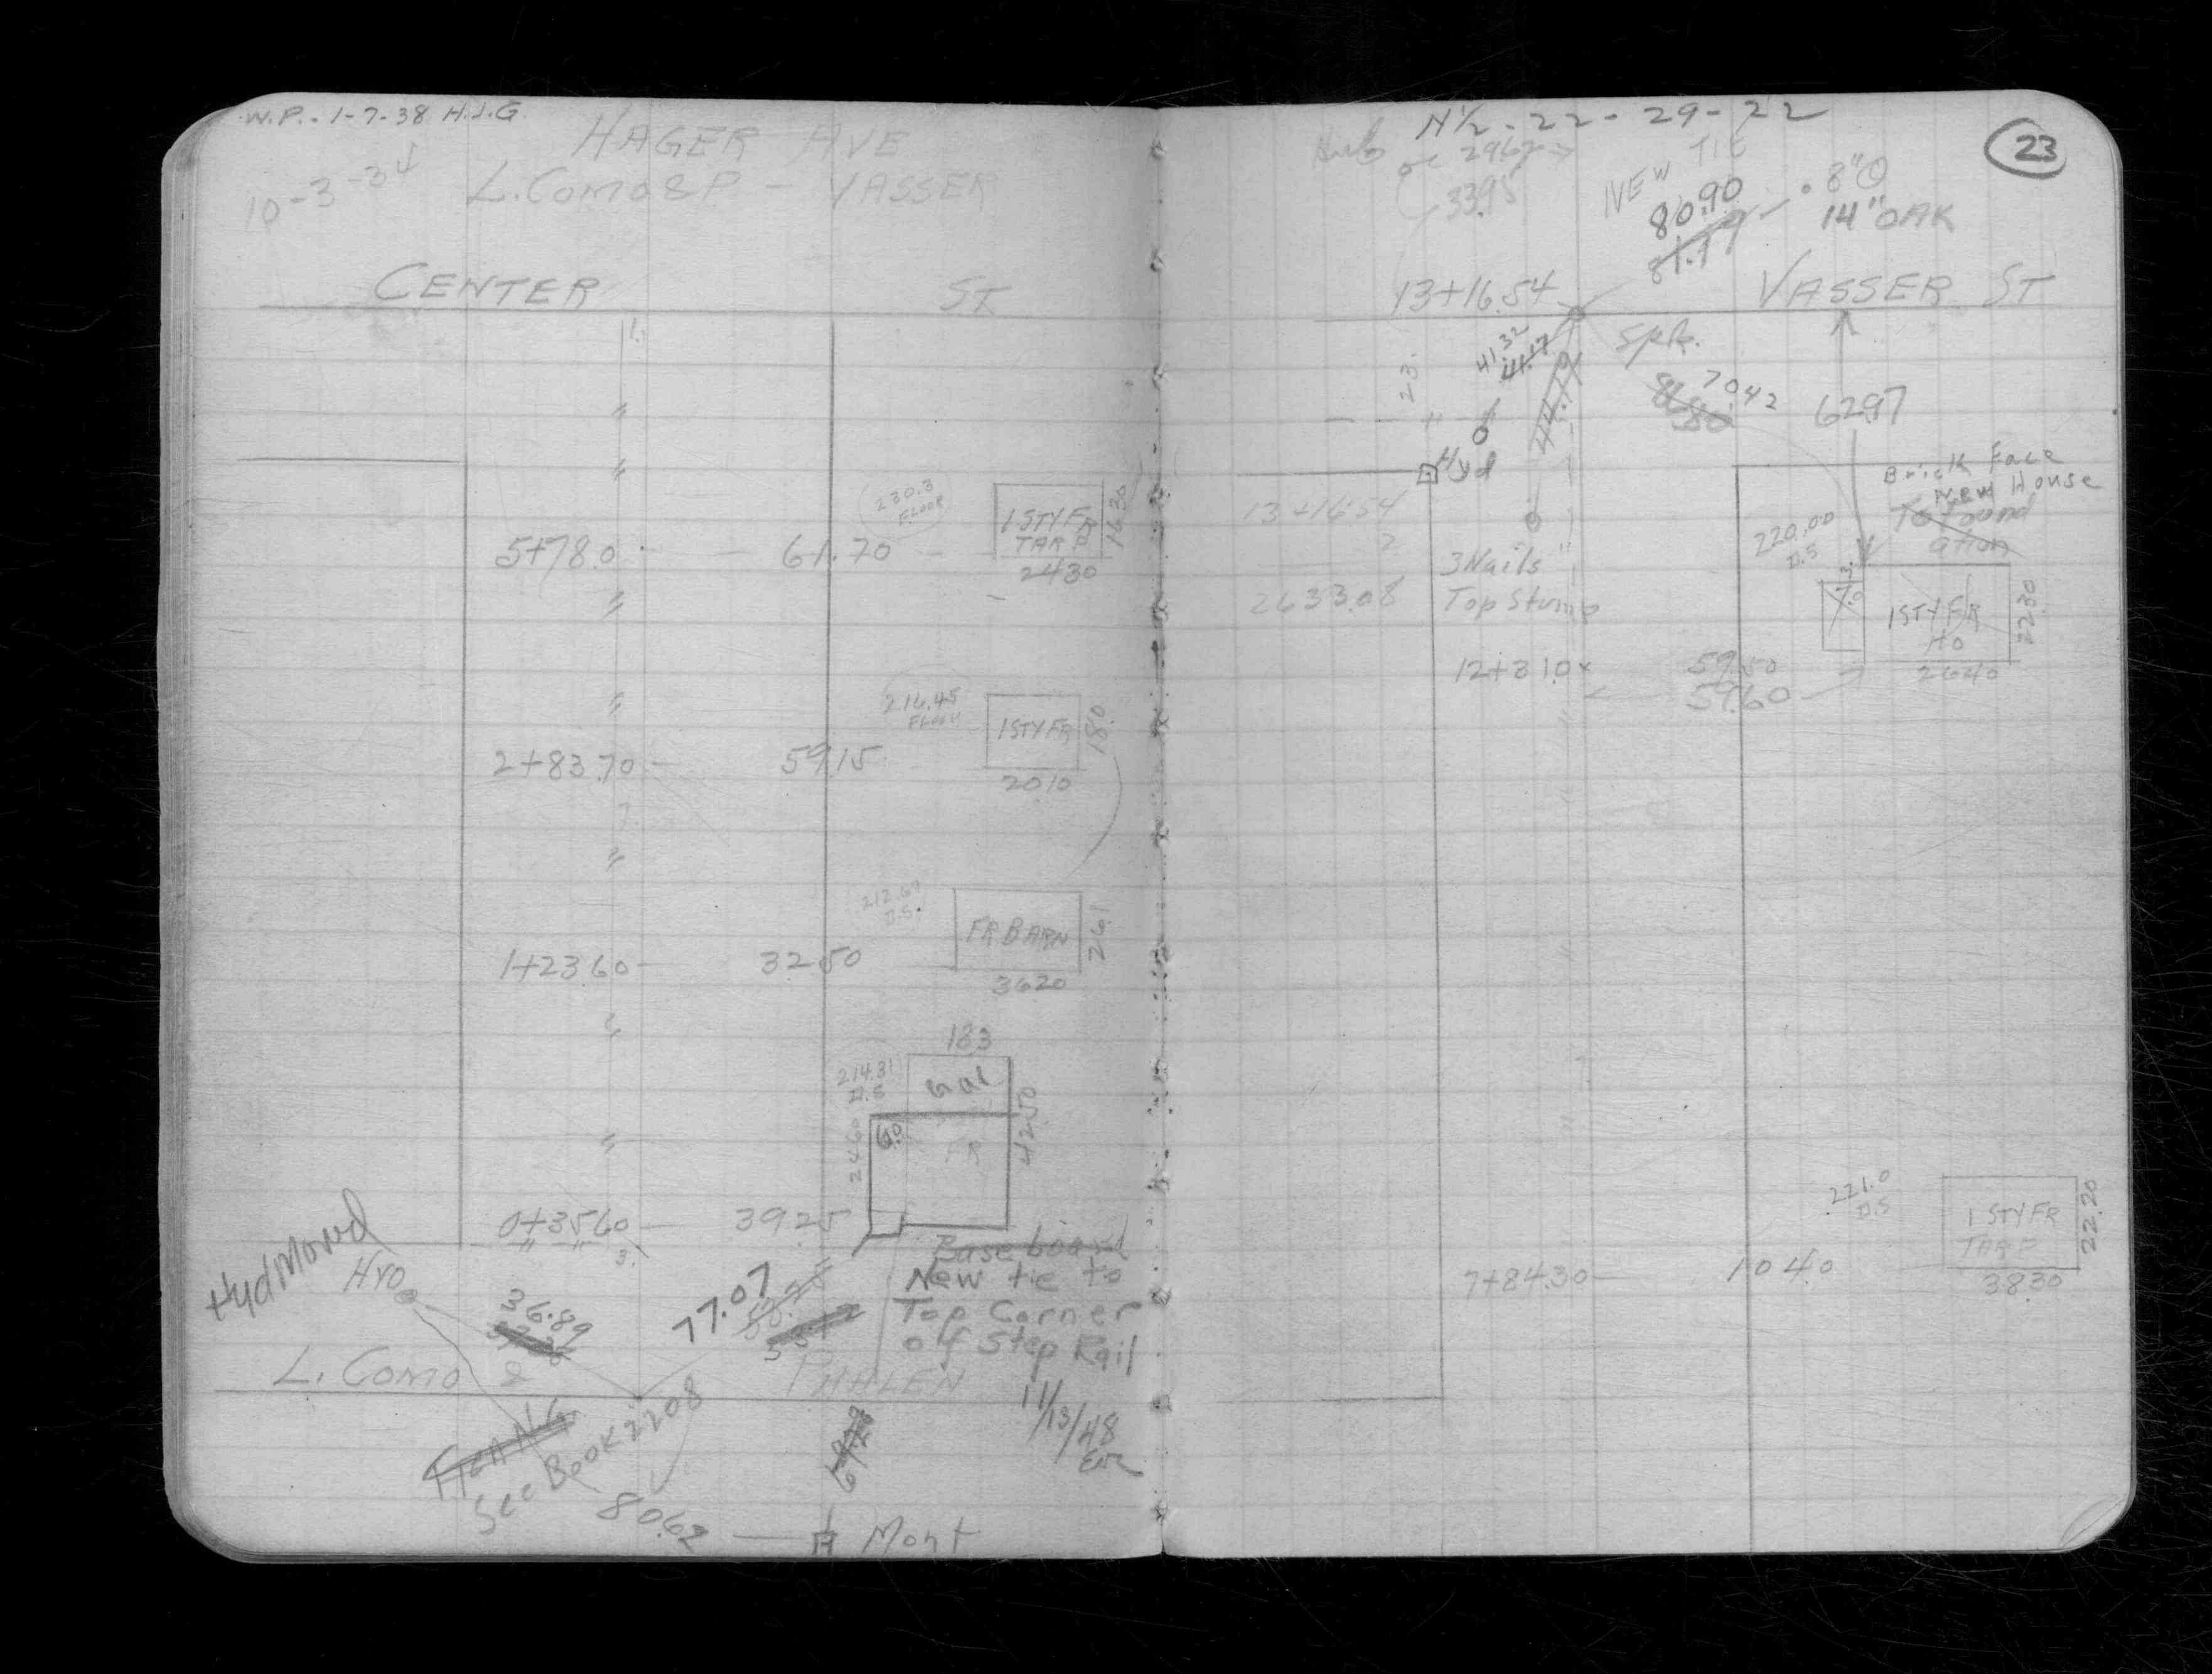 W.P. - 1-7-38 H.J.G.
HAGER AVE
10-3-34
L. COMO & P - VASSER
CENTER ST
230.3
FLOOR
1 STY FR
TAR P
16.30
5+78.0 - 61.70
24.30
216.45
FLOOR
1 STY FR
18.0
2+83.70 - 59.15
20.10
212.67
D.S.
FR BARN
26.1
1+23.60 - 32.50
36.20
18.3
214.31
D.S
Gar
24.60
6.0
FR
42.50
0+35.60 - 39.25
Base board
New tie to
Top Corner
of Step Rail
11/13/48
Hyd Moved
HYD
36.89
77.07
L. COMO & PHALEN
See Book 2208
80.62
Mont
N 1/2 - 22 - 29 - 22
23
33.95
NEW TIE
80.90
81.79
8"
14" OAK
13+16.54
VASSER ST
Spk.
41.32
41.17
44.19
23.
70.42
62.97
Hyd
Brick Face
New House
To Found
ation
13+16.54
2
2633.08
3 Nails
Top Stump
220.00
D.S
1 STY FR
HO
22.30
26.40
12+31.0
59.50
59.60
221.0
D.S
1 STY FR
TAR P
22.20
7+84.30 - 104.0
38.30